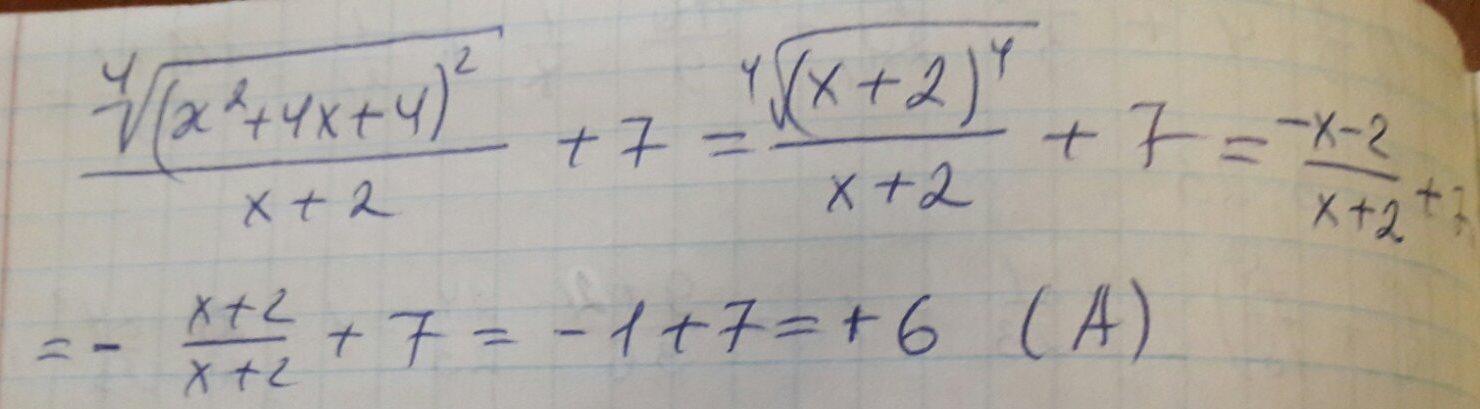 ∜((x²+4x+4)²)/(x+2) + 7 = ∜((x+2)⁴)/(x+2) + 7 = (-x-2)/(x+2) + 7
= - (x+2)/(x+2) + 7 = -1+7 = +6 (A)